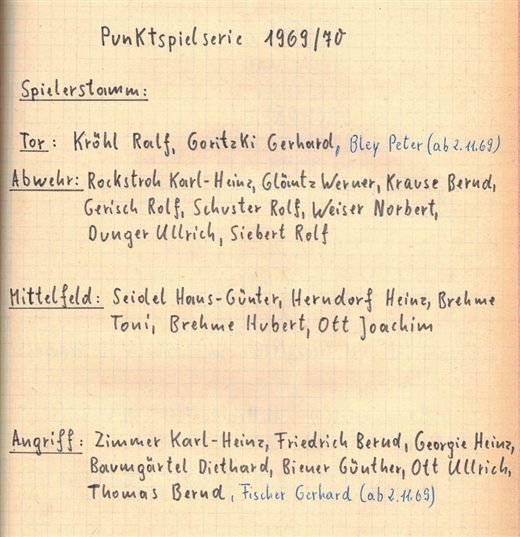 Punktspielserie 1969/70
Spielerstamm:
Tor: Kröhl Ralf, Goritzki Gerhard, Bley Peter (ab 2.11.69)
Abwehr: Rockstroh Karl-Heinz, Glöntz Werner, Krause Bernd,
Gerisch Rolf, Schuster Rolf, Weiser Norbert,
Dunger Ullrich, Siebert Rolf
Mittelfeld: Seidel Hans-Günter, Herndorf Heinz, Brehme
Toni, Brehme Hubert, Ott Joachim
Angriff: Zimmer Karl-Heinz, Friedrich Bernd, Georgie Heinz,
Baumgärtel Diethard, Biener Günther, Ott Ullrich,
Thomas Bernd, Fischer Gerhard (ab 2.11.69)